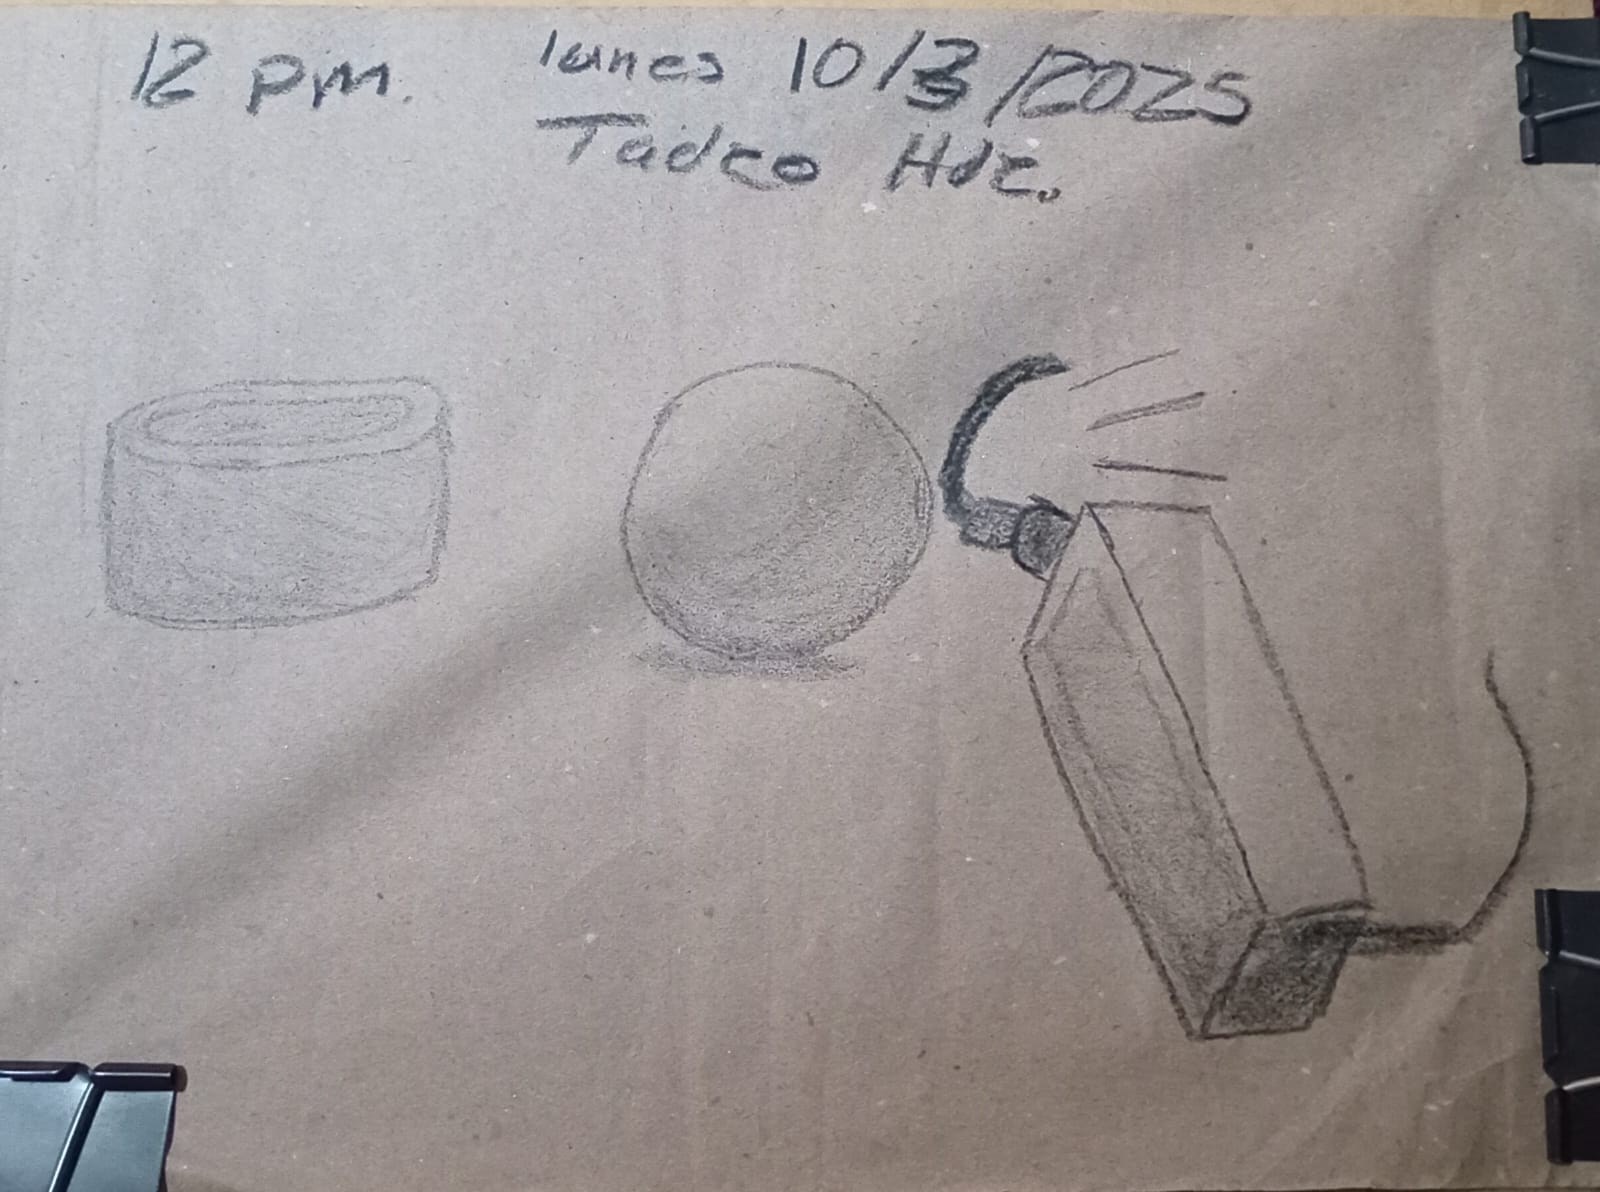 12 pm. lunes 10/3/2025
Tadeo Hdz.